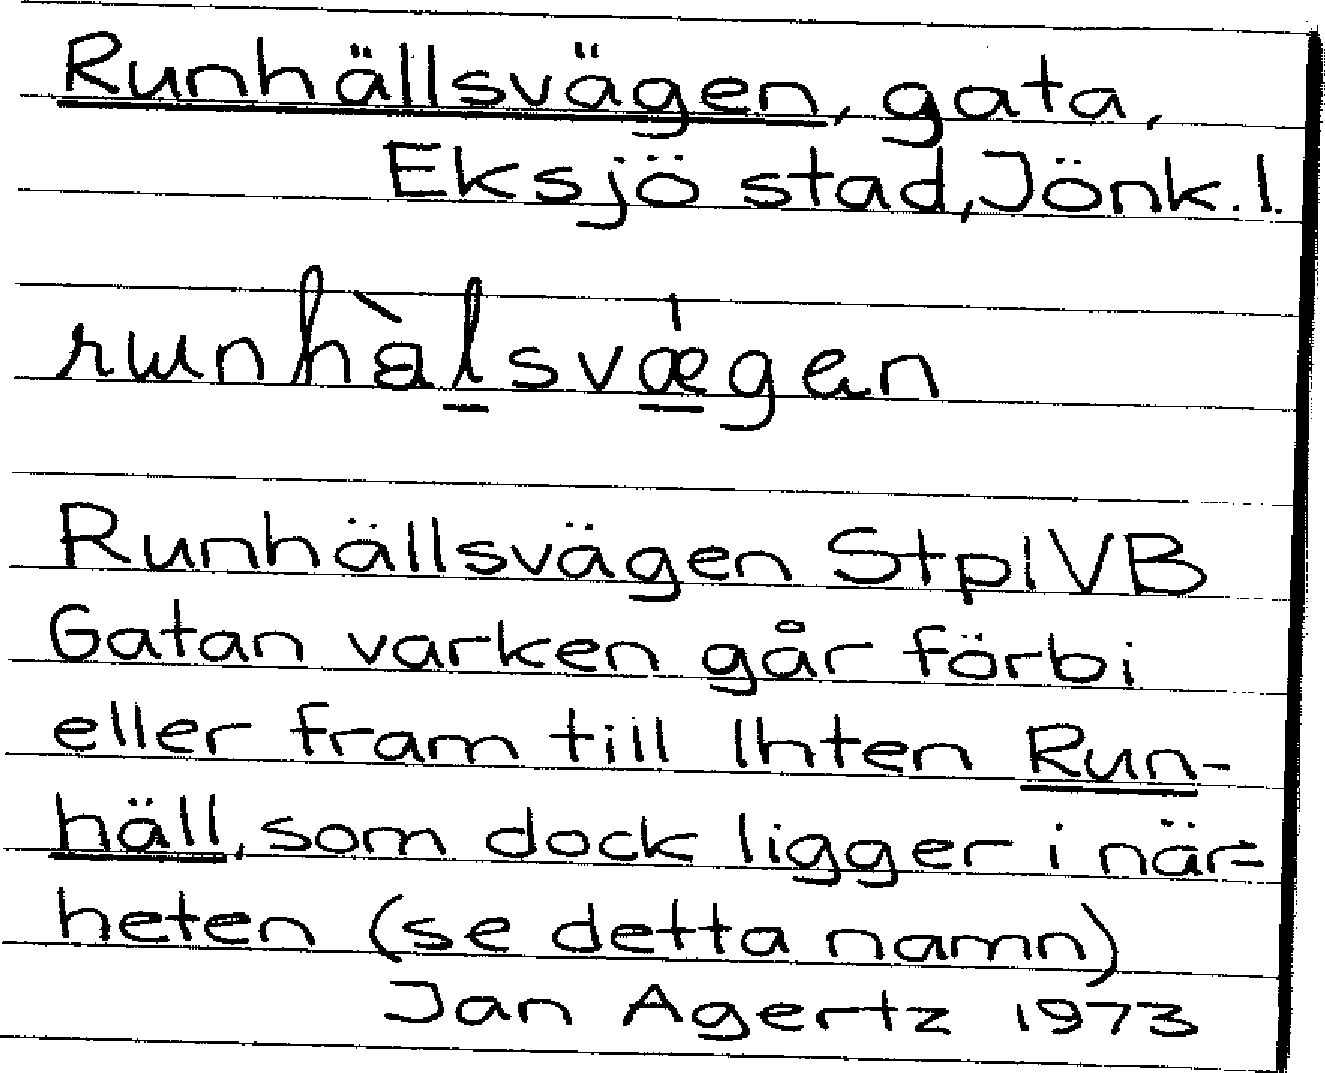 Runhällsvägen, gata,
Eksjö stad, Jönk. l.
runhàlsvǽgen
Runhällsvägen StplVB
Gatan varken går förbi
eller fram till lhten Run-
häll, som dock ligger i när=
heten (se detta namn)
Jan Agertz 1973